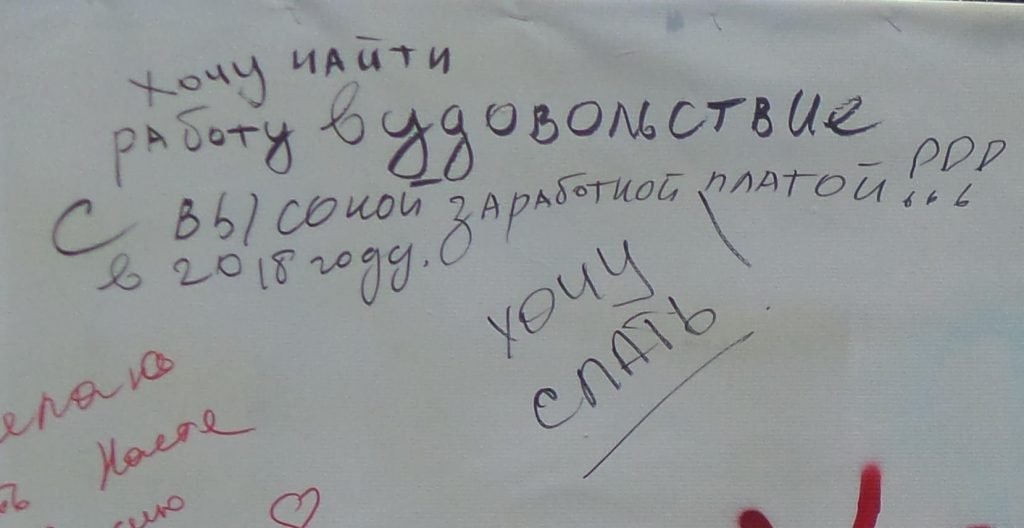 хочу найти
работу в удовольствие
с высокой заработной платой !!!
в 2018 году.
хочу
спать
Настя